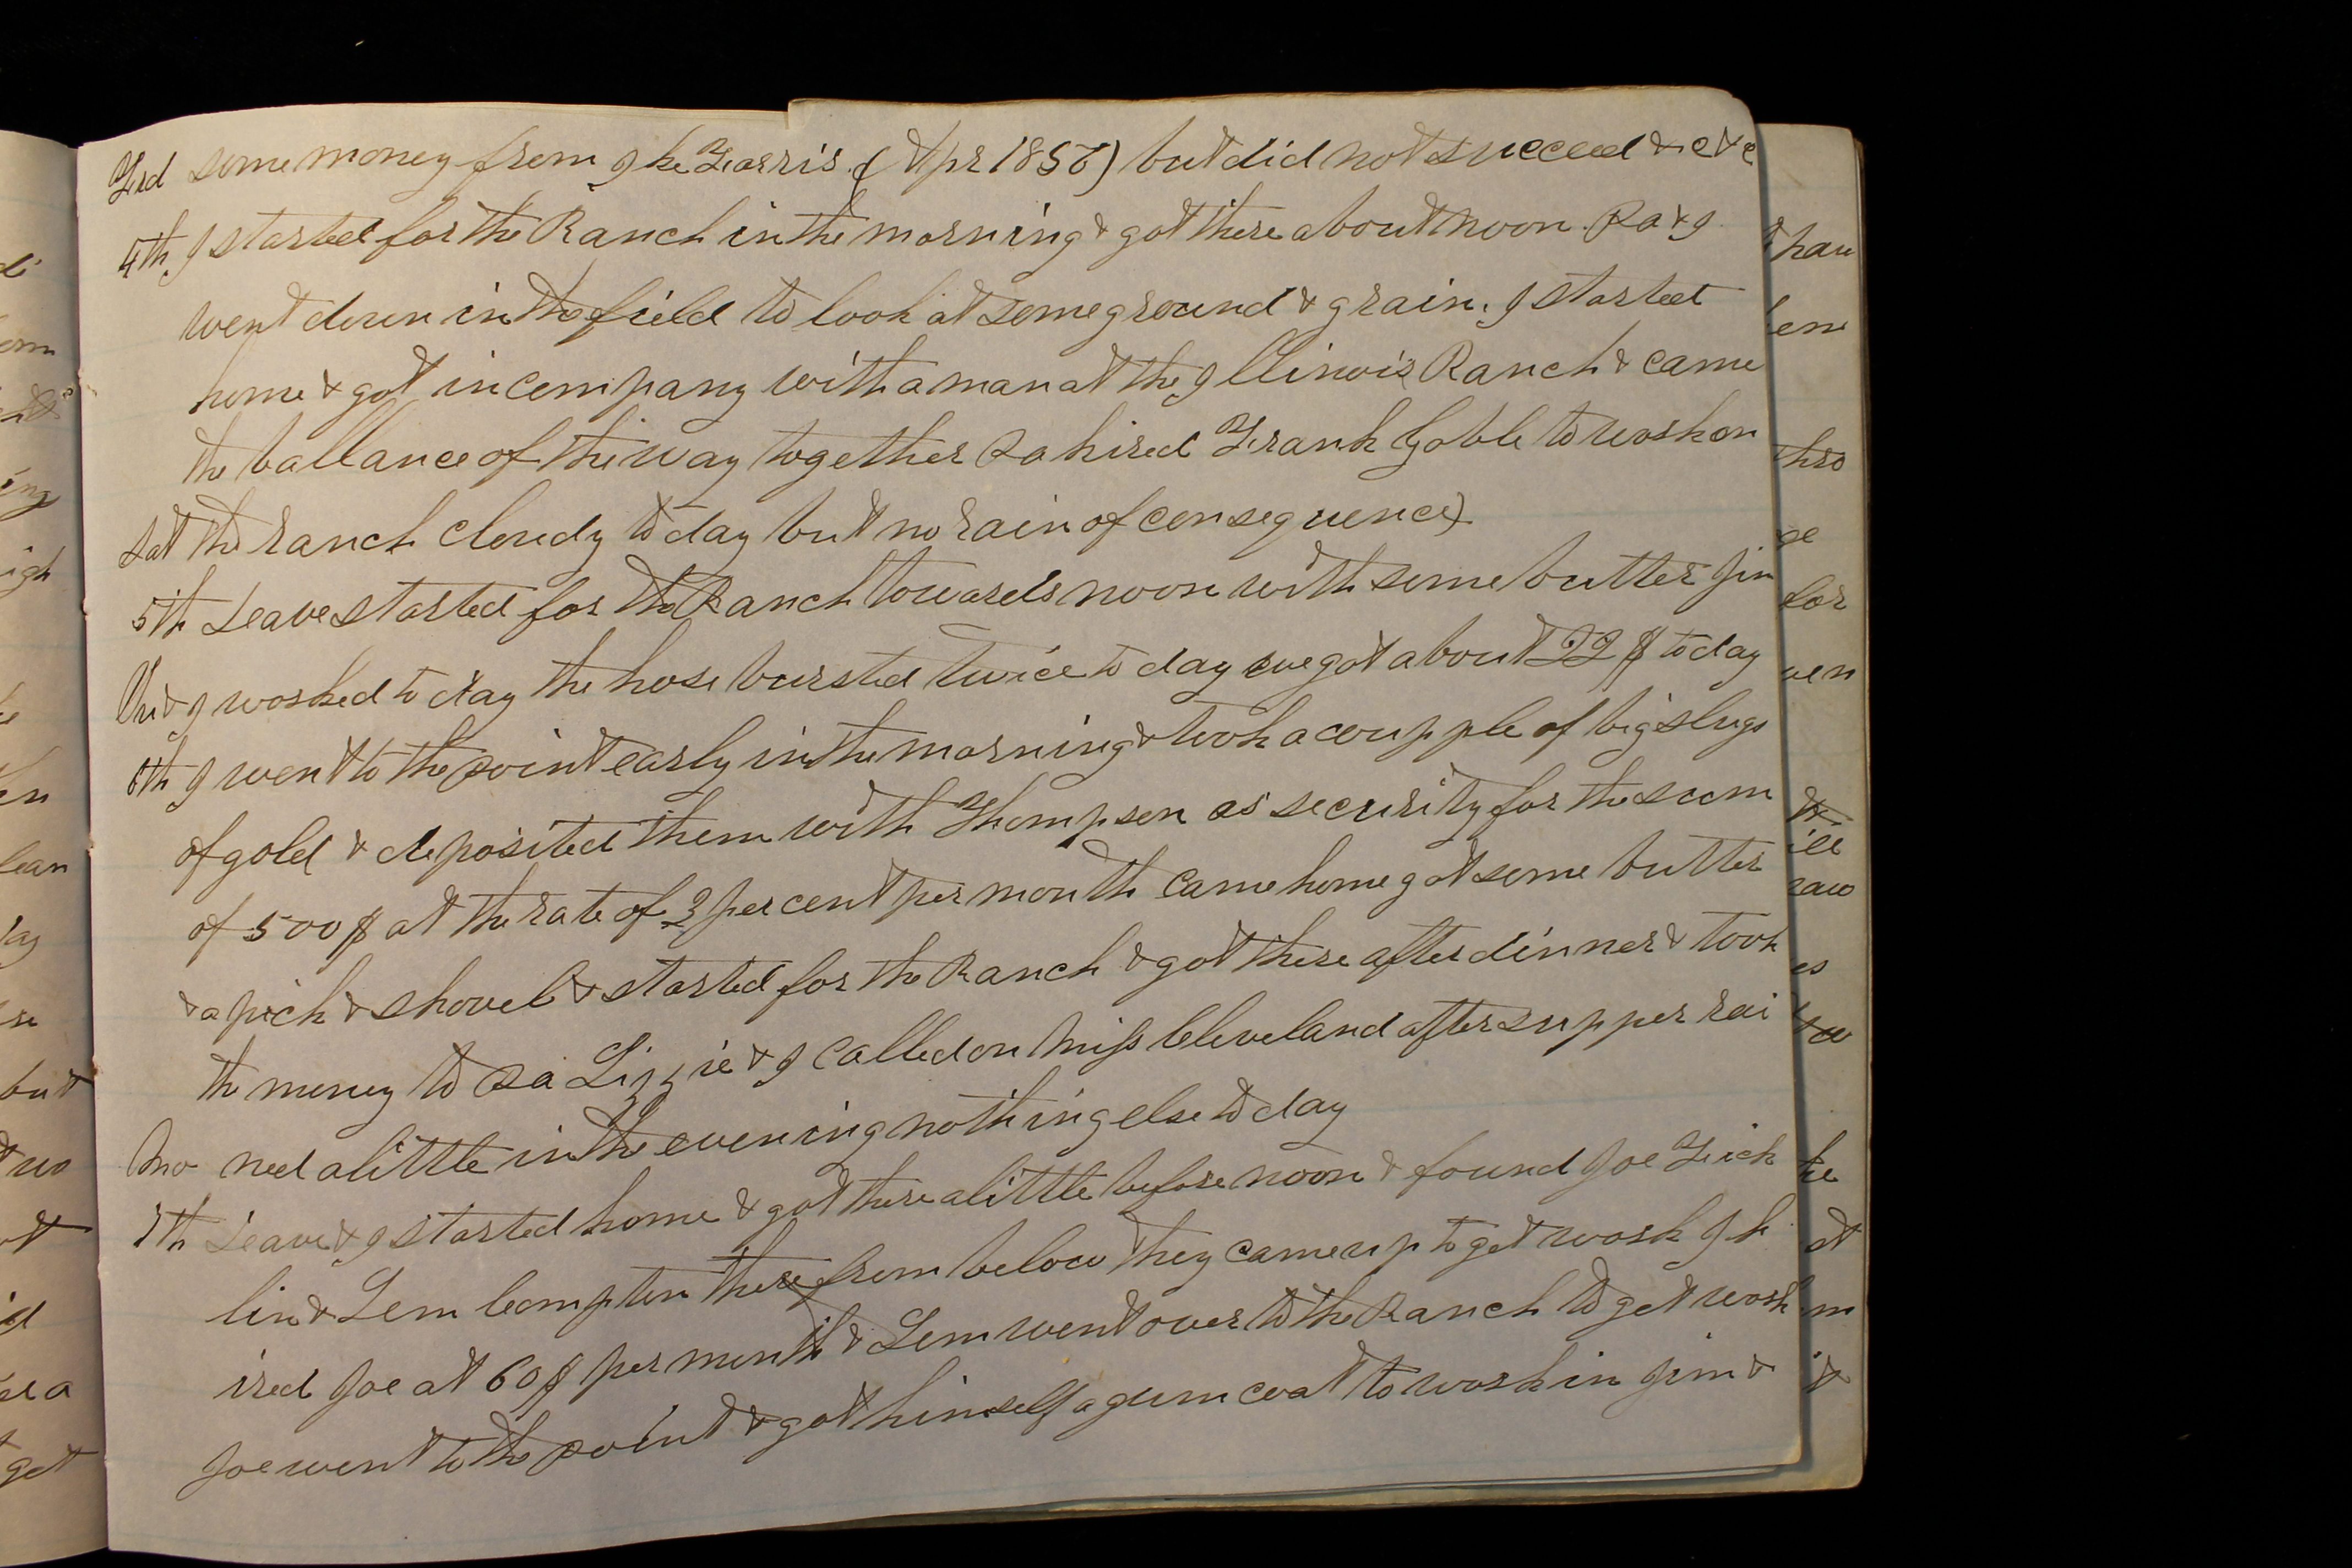 some money from Ike Farris. (Apr 1858) but did not succeed &c &c
4th I started for the Ranch in the morning & got there about noon. Pa & I
went down in the field to look at some ground & grain. I started
home & got in company with a man at the Illinois Ranch & came
the ballance of the way together Pa hired Frank Goble to work on
Sat the ranch cloudy to day but no rain of consequence
5th Leave started for the Ranch towards noon with some butter Jim
& I worked to day the hose bursted twice to day we got about 22 $ to day
6th I went to the point early in the morning & took a coupple of big slugs
of gold & deposited them with Thompson as security for the sum
of 500 $ at the rate of 3 per cent per month came home got some butter
& a pick & shovel & started for the Ranch & got there after dinner & took
the money to Pa Lizzie & I called on Miss Cleveland after supper rai
Mo ned a little in the evening nothing else to day
7th Leave & I started home & got there a little before noon & found Joe Frick
lin & Lem Compton there from below they came up to get work I h
ired Joe at 60 $ per month & Lem went over to the Ranch to get work
Joe went to the point & got himself a gum coat to work in Jim &